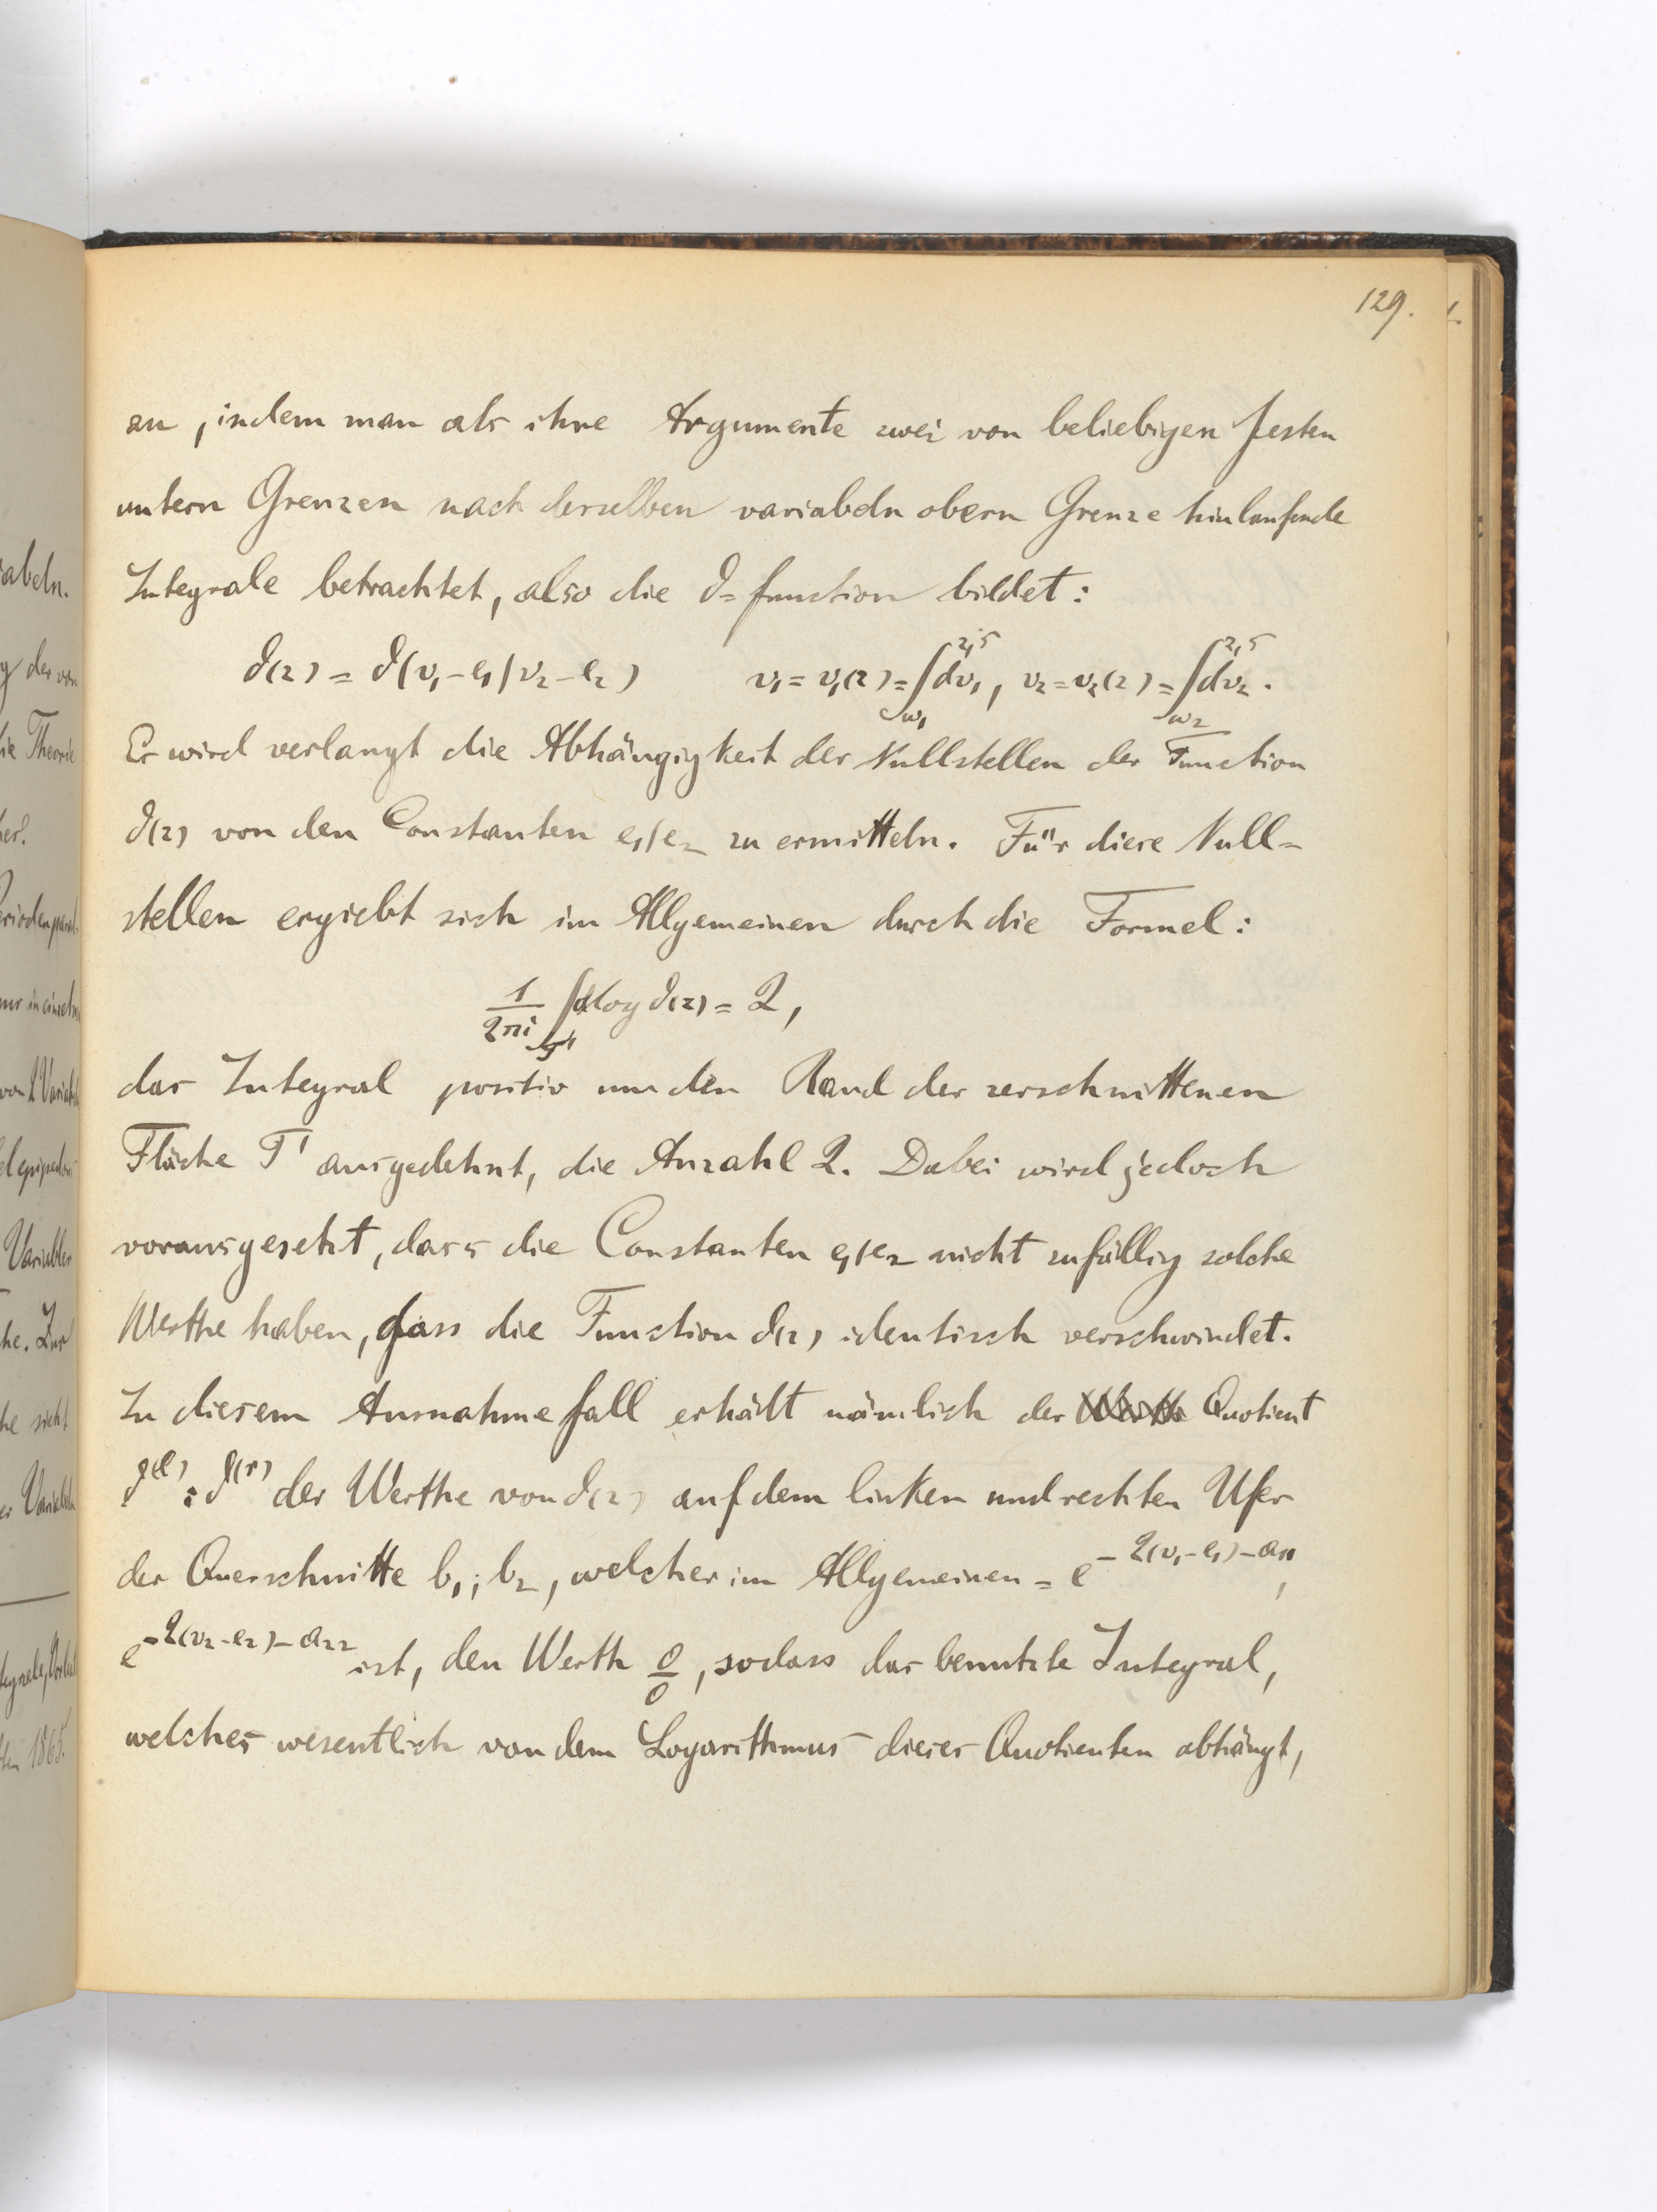 129.
an, indem man als ihre Argumente zwei von beliebigen festen
untern Grenzen nach derselben variabeln obern Grenze hinlaufende
Integrale betrachtet, also die ϑ=function bildet:
ϑ(z) = ϑ(v₁-e₁|v₂-e₂) v₁ = v₁(z) = ∫_{ω₁}^{z,s} dv₁, v₂ = v₂(z) = ∫_{ω₂}^{z,s} dv₂.
Es wird verlangt die Abhängigkeit der Nullstellen der Function
ϑ(z) von den Constanten e₁|e₂ zu ermitteln. Für diese Null=
stellen ergiebt sich im Allgemeinen durch die Formel:
1/2πi ∫ dlog ϑ(z) = 2,
das Integral positiv um den Rand der zerschnittenen
Fläche T' ausgedehnt, die Anzahl 2. Dabei wird jedoch
vorausgesetzt, dass die Constanten e₁|e₂ nicht zufällig solche
Werthe haben, dass die Function ϑ(z) identisch verschwindet.
In diesem Ausnahmefall erhält nämlich der Quotient
ϑ^(l) : ϑ^(r) der Werthe von ϑ(z) auf dem linken und rechten Ufer
der Querschnitte b₁; b₂, welcher im Allgemeinen = e^{-2(v₁-e₁)-a₁₁},
e^{-2(v₂-e₂)-a₂₂} ist, den Werth 0/0, sodass das benutzte Integral,
welches wesentlich von dem Logarithmus dieses Quotienten abhängt,
abeln.
die Theorie
Variabler
1865.